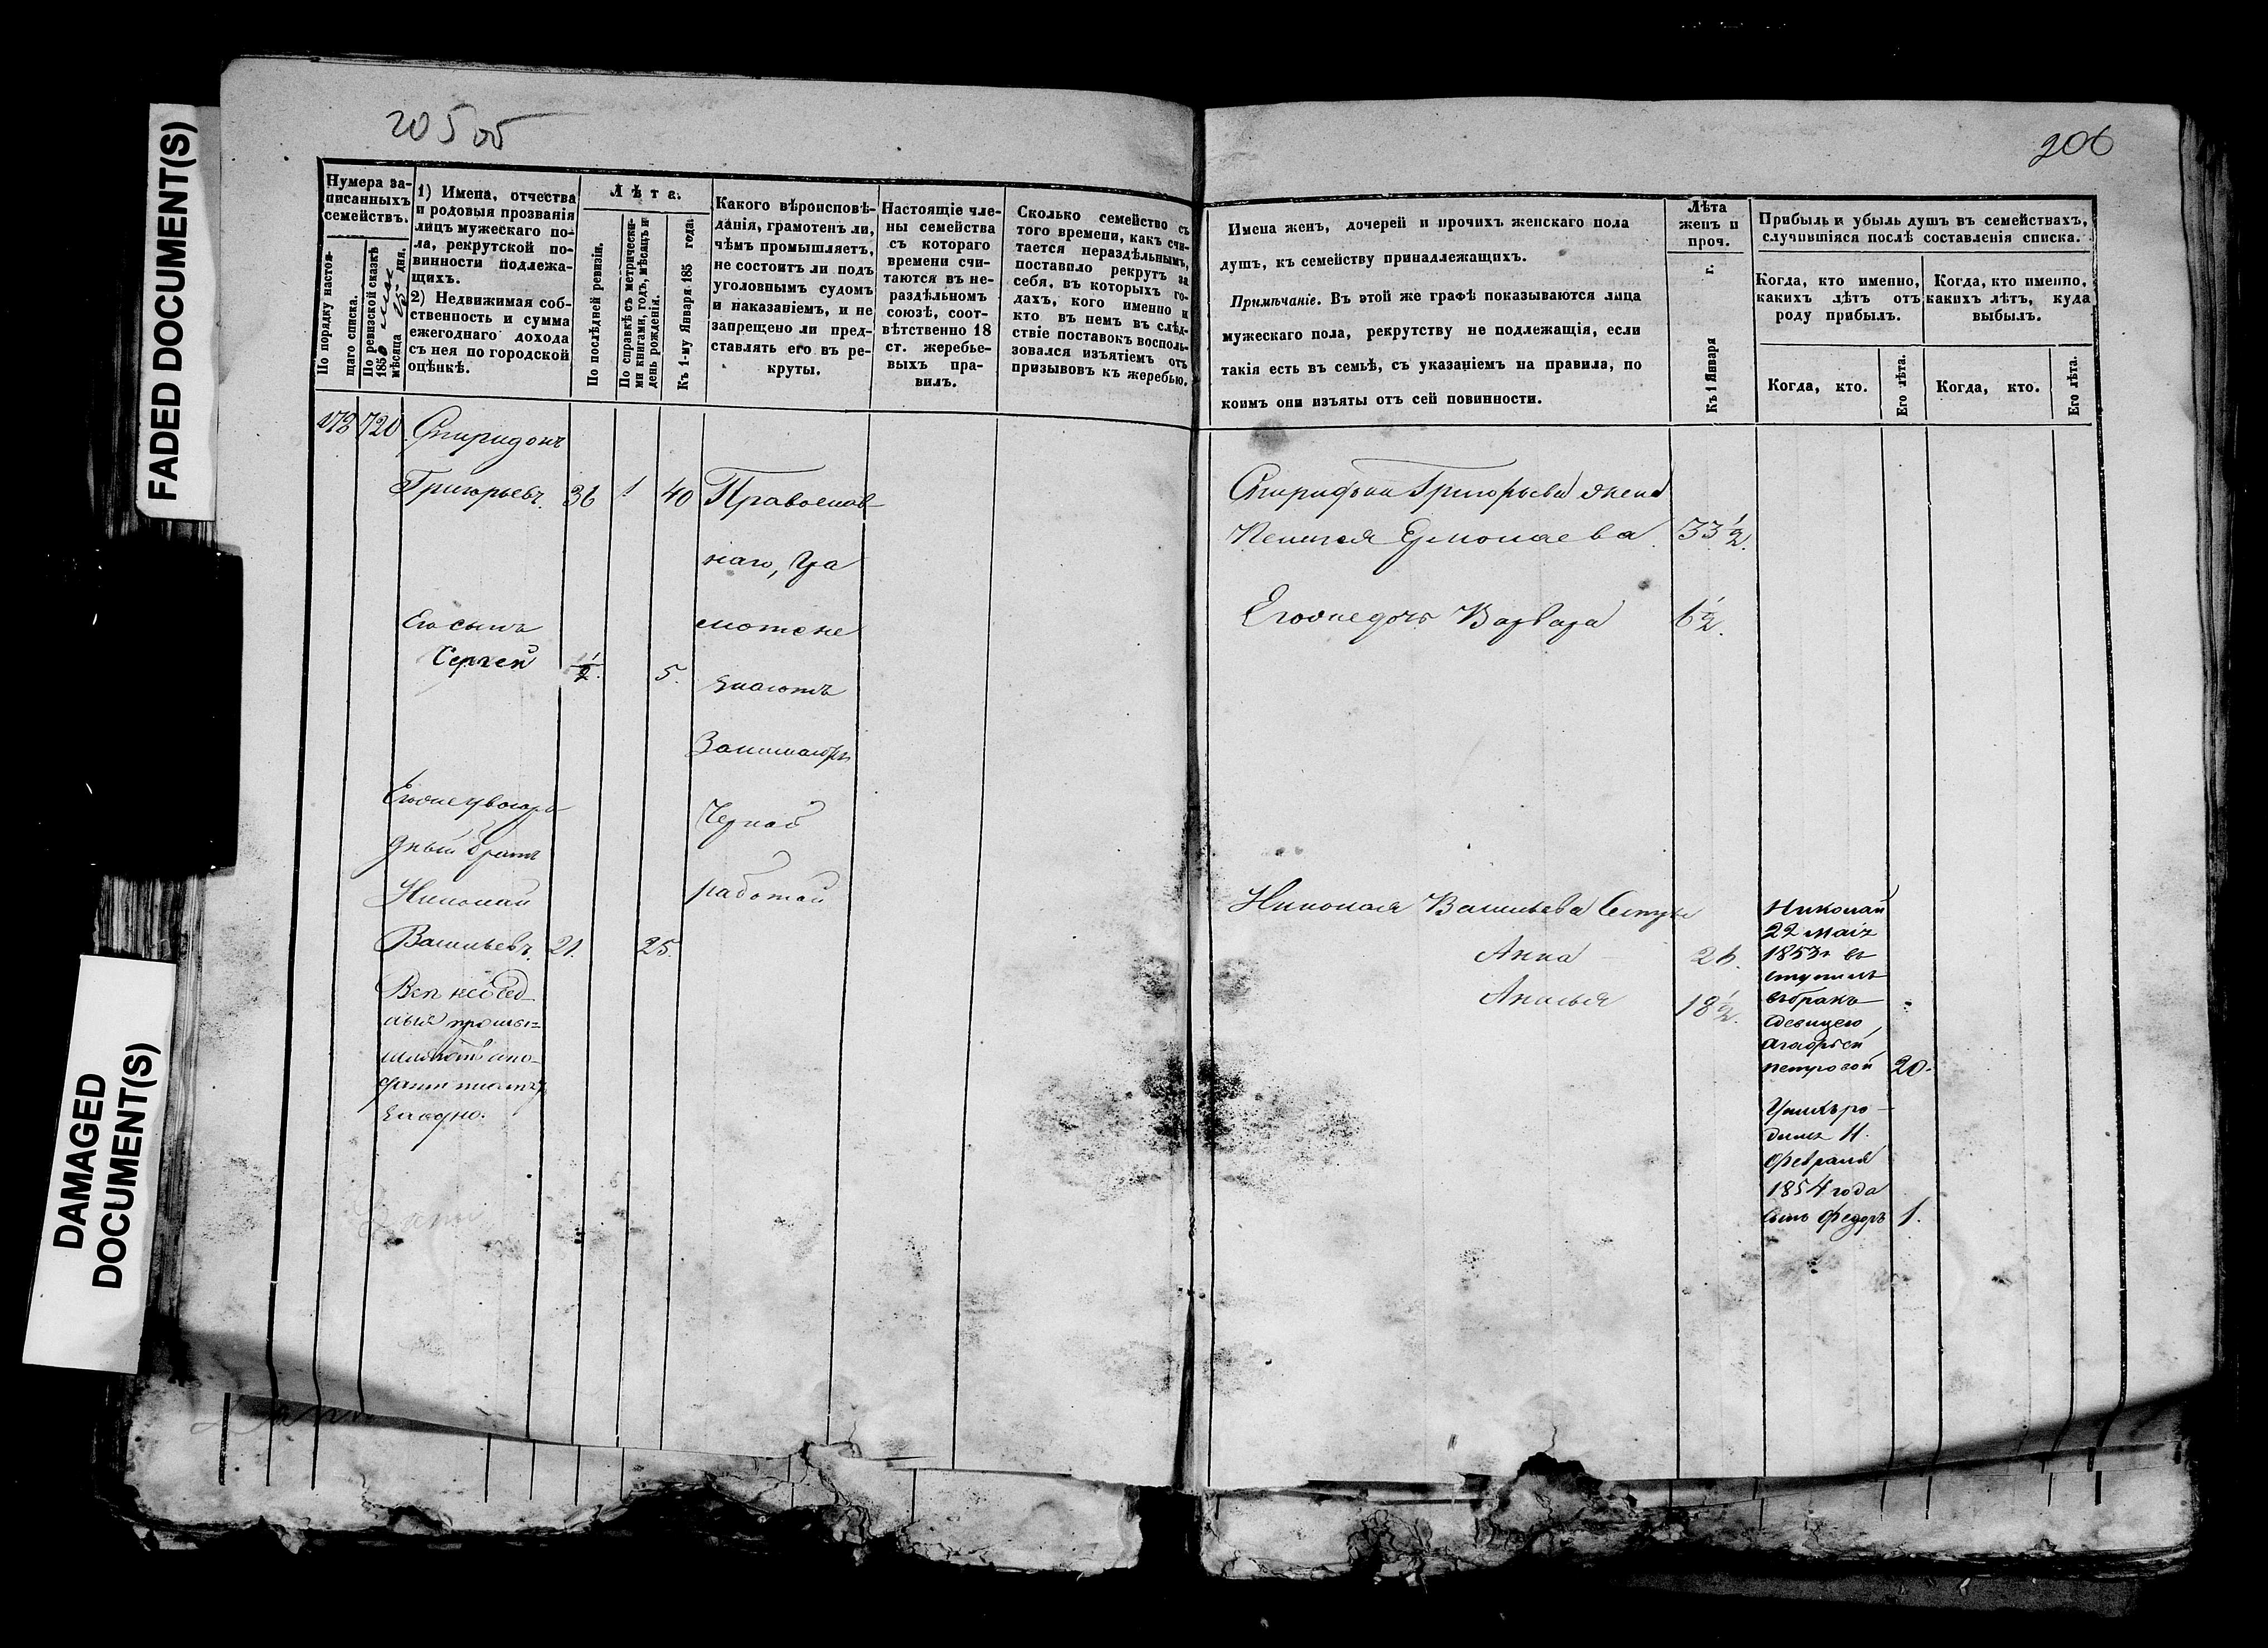 FADED DOCUMENT(S)
DAMAGED
DOCUMENT(S)
205 об
Нумера за-
писанныхъ
семействъ.
По порядку настоя-
щаго списка.
По ревизской сказкѣ
1850 мая
мѣсяца 25 дня.
1) Имена, отчества
и родовыя прозванія
лицъ мужескаго по-
ла, рекрутской по-
винности подлежа-
щихъ.
2) Недвижимая соб-
ственность и сумма
ежегоднаго дохода
съ нея по городской
оцѣнкѣ.
Лѣта.
По послѣдней ревизіи.
По справкѣ съ метрически-
ми книгами, годъ, мѣсяцъ и
день рожденія.
Къ 1-му Января 185 года.
Какого вѣроисповѣ-
данія, грамотенъ ли,
чѣмъ промышляетъ,
не состоитъ ли подъ
уголовнымъ судомъ
и наказаніемъ, и не
запрещено ли пред-
ставлять его въ ре-
круты.
Настоящіе чле-
ны семейства
съ котораго
времени счи-
таются въ не-
раздѣльномъ
союзѣ, соот-
вѣтственно 18
ст. жеребье-
выхъ пра-
вилъ.
Сколько семейство съ
того времени, какъ счи-
тается нераздѣльнымъ,
поставило рекрутъ за
себя, въ которыхъ го-
дахъ, кого именно и
кто въ немъ въ слѣд-
ствіе поставокъ восполь-
зовался изъятіемъ отъ
призывовъ къ жеребью.
720 Спиридонъ
Григорьевъ. 36 40 Православ-
наго, Гра
моте не
Его сынъ
Сергей 1/2. 5. знаютъ
Занимаютъ
Егоже двоюро
дный братъ Черной
Николай работой
Васильевъ. 21. 25.
206
Имена женъ, дочерей и прочихъ женскаго пола
душъ, къ семейству принадлежащихъ.
Примѣчаніе. Въ этой же графѣ показываются лица
мужескаго пола, рекрутству не подлежащія, если
такія есть въ семьѣ, съ указаніемъ на правила, по
коимъ они изъяты отъ сей повинности.
Лѣта
женъ и
проч.
Къ 1 Января г.
Прибыль и убыль душъ въ семействахъ,
случившіяся послѣ составленія списка.
Когда, кто именно,
какихъ лѣтъ отъ
роду прибылъ.
Когда, кто именно,
какихъ лѣтъ, куда
выбылъ.
Когда, кто.
Его лѣта.
Когда, кто.
Его лѣта.
Спиридона Григорьева жена
Ермолаева 33 1/2.
Егоже дочь Варвара 6 1/2.
Николая Васильева Сестры
Анна 26.
18 1/2.
Николай
22 маія
1853 г. в
ступилъ
въ бракъ
съ девицею
Агафьей
Петровой 20.
У нихъ ро-
дился 11.
Февраля
1854 года
сынъ Федоръ 1.